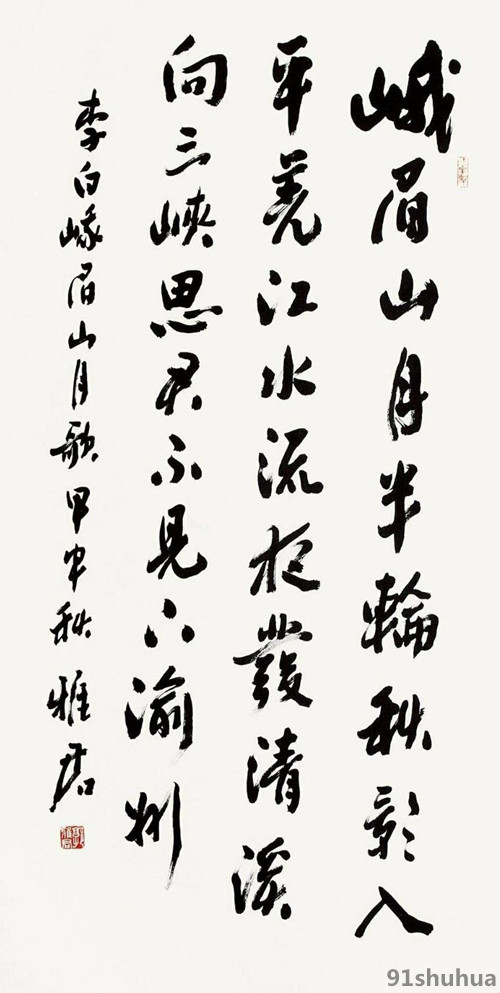 峨眉山月半輪秋影入
平羌江水流夜發清溪
向三峽思君不見下渝州
李白峨眉山月歌甲申秋雅君
91shuhua